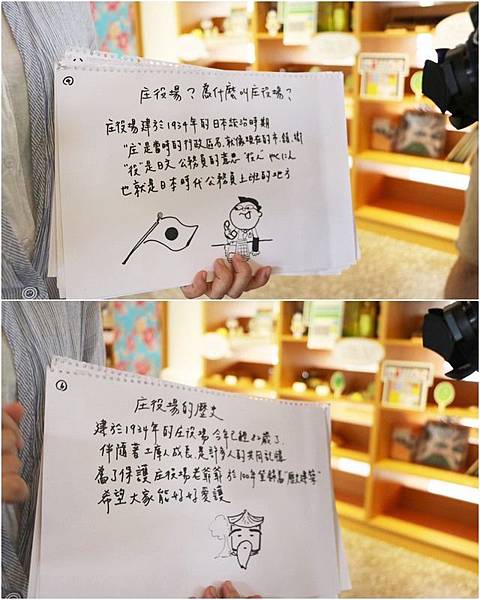 庄役場？為什麼叫庄役場？
庄役場建於1934年的日本統治時期
"庄"是當時的行政區名，就像現在的市、鎮、鄉
"役"是日文公務員的意思 "役人"
也就是日本時代公務員上班的地方
庄役場的歷史
建於1934年的庄役場 今年已經 歲了.
伴隨著土庫人成長，是許多人的共同記憶
為了保護庄役場老爺爺 於100年登錄為"歷史建築"
希望大家能好好愛護